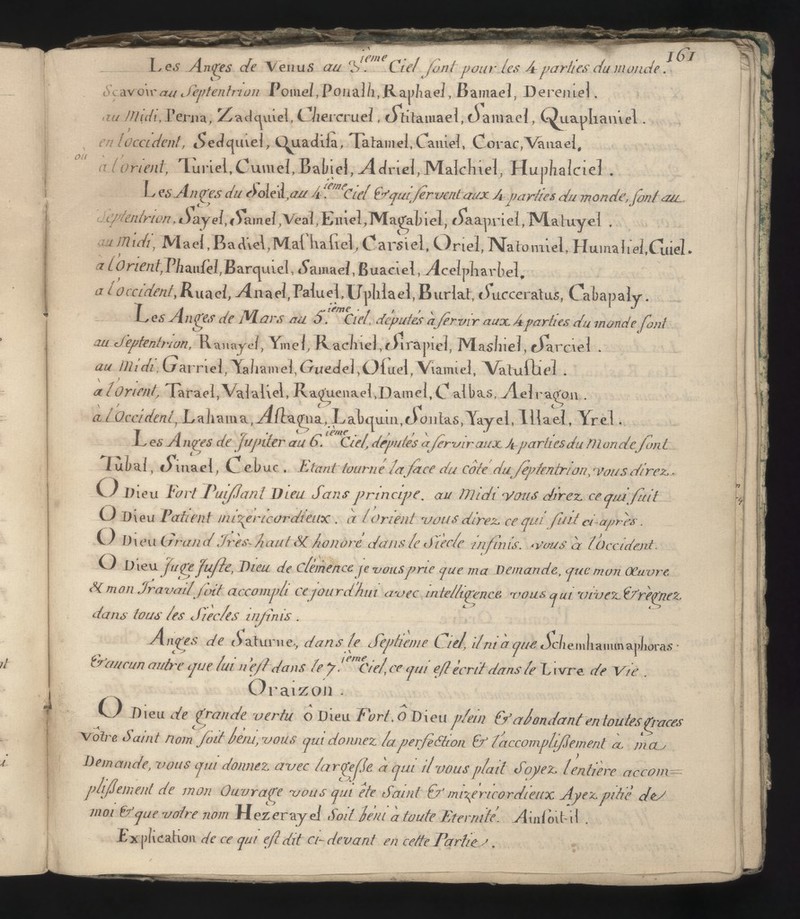 161
Les Anges de Venus au 3.ieme Ciel sont pour les 4 parties du monde.
Scavoir au Septentrion Pomel, Ponalh, Raphael, Bamael, Dereniel.
au Midi, Perna, Zadquiel, Chercruel, Stitamael, Samael, Quaphaniel.
en l'occident, Sedquiel, Quadisa, Tatamel, Caniel, Corac, Vanael,
ou
a l'orient, Turiel, Cumel, Babiel, Adriel, Malchiel, Huphalciel.
Les Anges du Soleil, au 4.ième Ciel & qui servent aux 4 parties du monde, sont au
Septentrion, Sayel, Samel, Veal, Eniel, Magabiel, Saapriel, Matuyel.
au Midi, Mael, Badiel, Mashasiel, Carsiel, Oriel, Natomiel, Humaliel, Cuiel.
a l'Orient, Phansel, Barquiel, Samael, Buaciel, Acelpharbel,
a l'occident, Ruael, Anael, Paluel, Uphlael, Burlat, Succeratus, Cabapaly.
Les Anges de Mars au 5.ième Ciel, députés à servir aux 4 parties du monde sont
au Septentrion, Ranayel, Ymel, Rachiel, Sirapiel, Mashiel, Sarciel.
au Midi, Garriel, Yahamel, Guedel, Osuel, Viamiel, Vatustiel.
a l'orient, Tarael, Valaliel, Raguenael, Damel, Calbas, Aelragon.
a l'Occident, Lahama, Astagna, Labquin, Sontas, Yayel, Illael, Yrel.
Les Anges de Jupiter au 6.ième Ciel, députés a servir aux 4 parties du Monde sont
Tubal, Sinael, Cebuc. Etant tourné la face du côté du septentrion, vous direz.
O Dieu Fort Puissant Dieu Sans principe. au Midi vous direz ce qui suit
O Dieu Patient mizéricordieux. à l'orient vous direz ce qui suit ci-après.
O Dieu Grand Très-haut & honoré dans le Siècle infinis. vous à l'Occident.
O Dieu Juge Juste, Dieu de Clémence je vous prie que ma Demande, que mon Œuvre
& mon Travail soit accompli ce jourd'hui avec intelligence vous qui vivez & règnez
dans tous les Siècles infinis.
Anges de Saturne, dans le Septième Ciel, il ni à que Schemhammaphoras.
& aucun autre que lui n'est dans le 7.ième Ciel, ce qui est écrit dans le Livre de Vie.
Oraizon.
O Dieu de grande vertu ô Dieu Fort, ô Dieu plein & abondant en toutes graces
Vôtre Saint nom soit béni, vous qui donnez la perfection & l'accomplissement à ma
Demande, vous qui donnez avec largesse à qui il vous plait Soyez l'entière accom=
plissement de mon Ouvrage vous qui ête Saint & mizéricordieux Ayez pitié de
moi & que votre nom Hezerayel Soit béni à toute Eternité. Ainsoit-il.
Explication de ce qui est dit ci-devant en cette Partie.